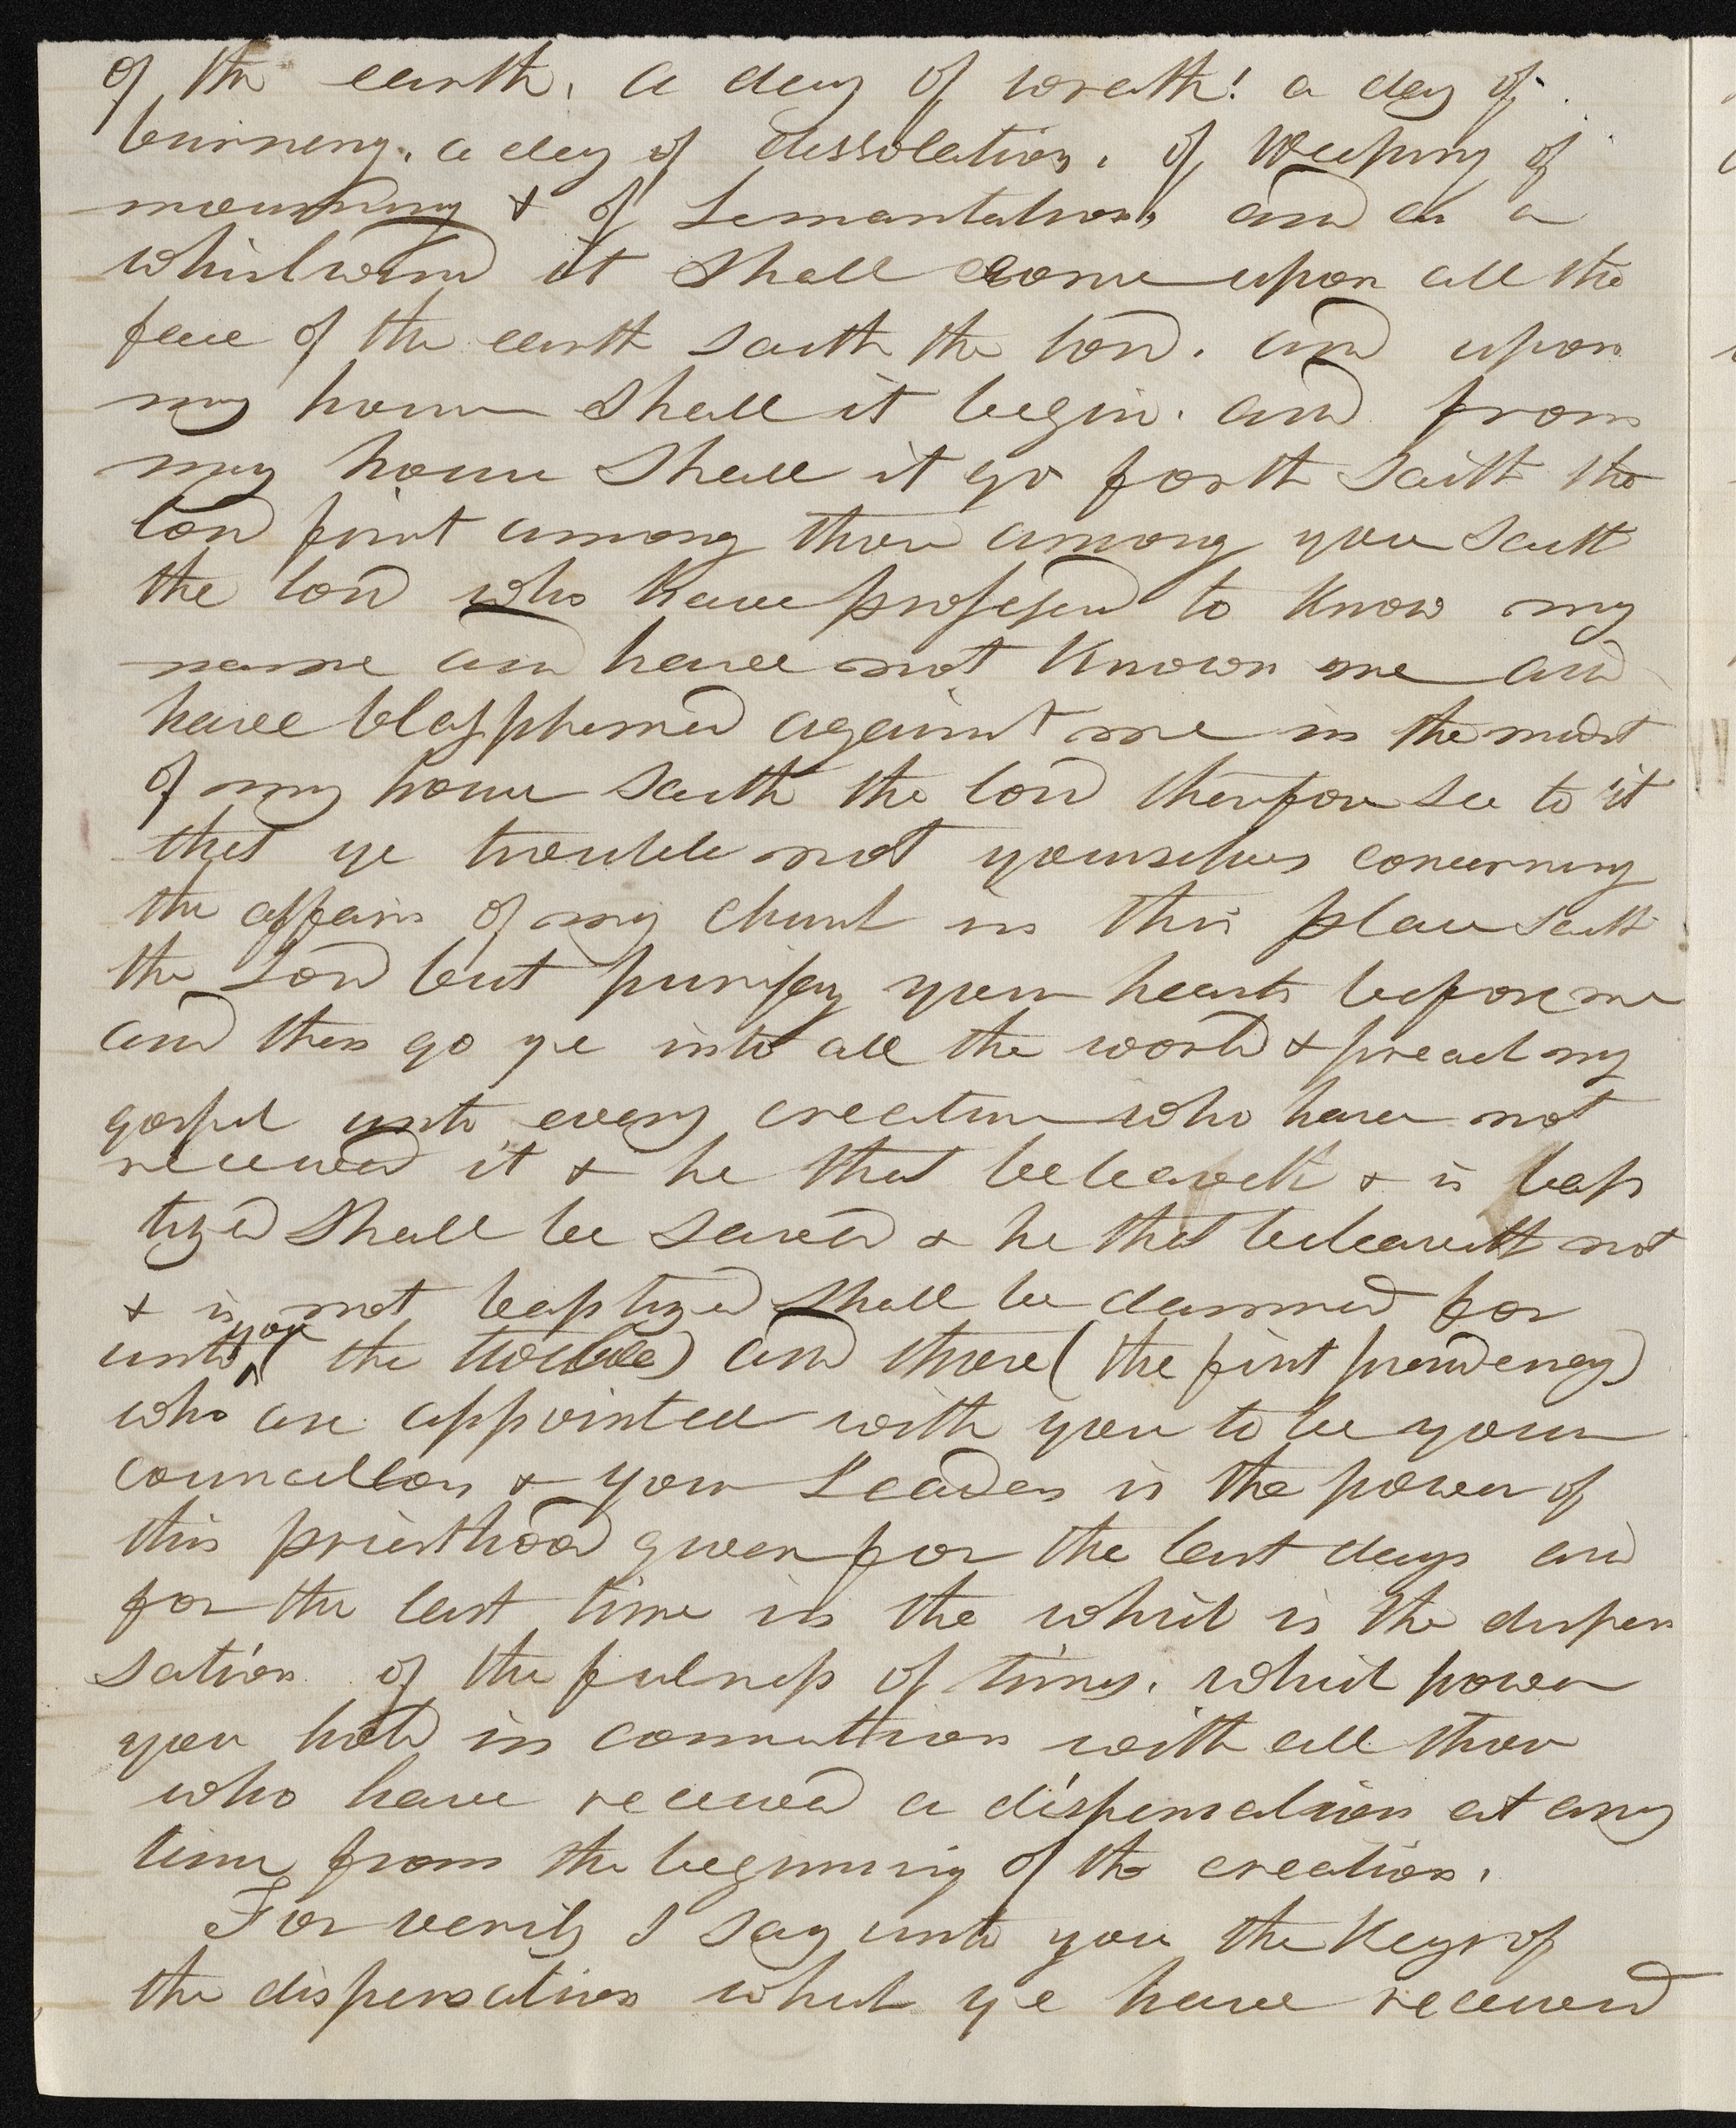 of the earth, a day of wrath! a day of
burning, a day of dessolation, of Weeping of
mourning & of Lamantation, and as a
whirlwind it Shall come upon all the
face of the earth saith the lord. and upon
my house Shall it begin. and from
my house Shall it go forth Saith the
lord first among those among you Saith
the lord who have profesed to know my
name and have not known me and
have blasphemed against me in the midst
of my house Saith the lord therefore see to it
that ye trouble not yourselves concerning
the affairs of my church in this place saith
the Lord but purify your hearts before me
and then go ye into all the world & preach my
gospel unto every creature who have not
received it & he that beleaveth & is bap
tized Shall be saved & he that beleaveth not
& is not baptized Shall be damned for
unto you (the twelve) and those (the first presidency)
who are appointed with you to be your
councellors & your Leaders is the power of
this priesthood given for the last days and
for the last time in the which is the dispen
sation of the fulness of times. which power
you hold in connection with all those
who have received a dispensation at any
time from the beginning of the creation.
For verily I say unto you the Keys of
the dispensation which ye have received